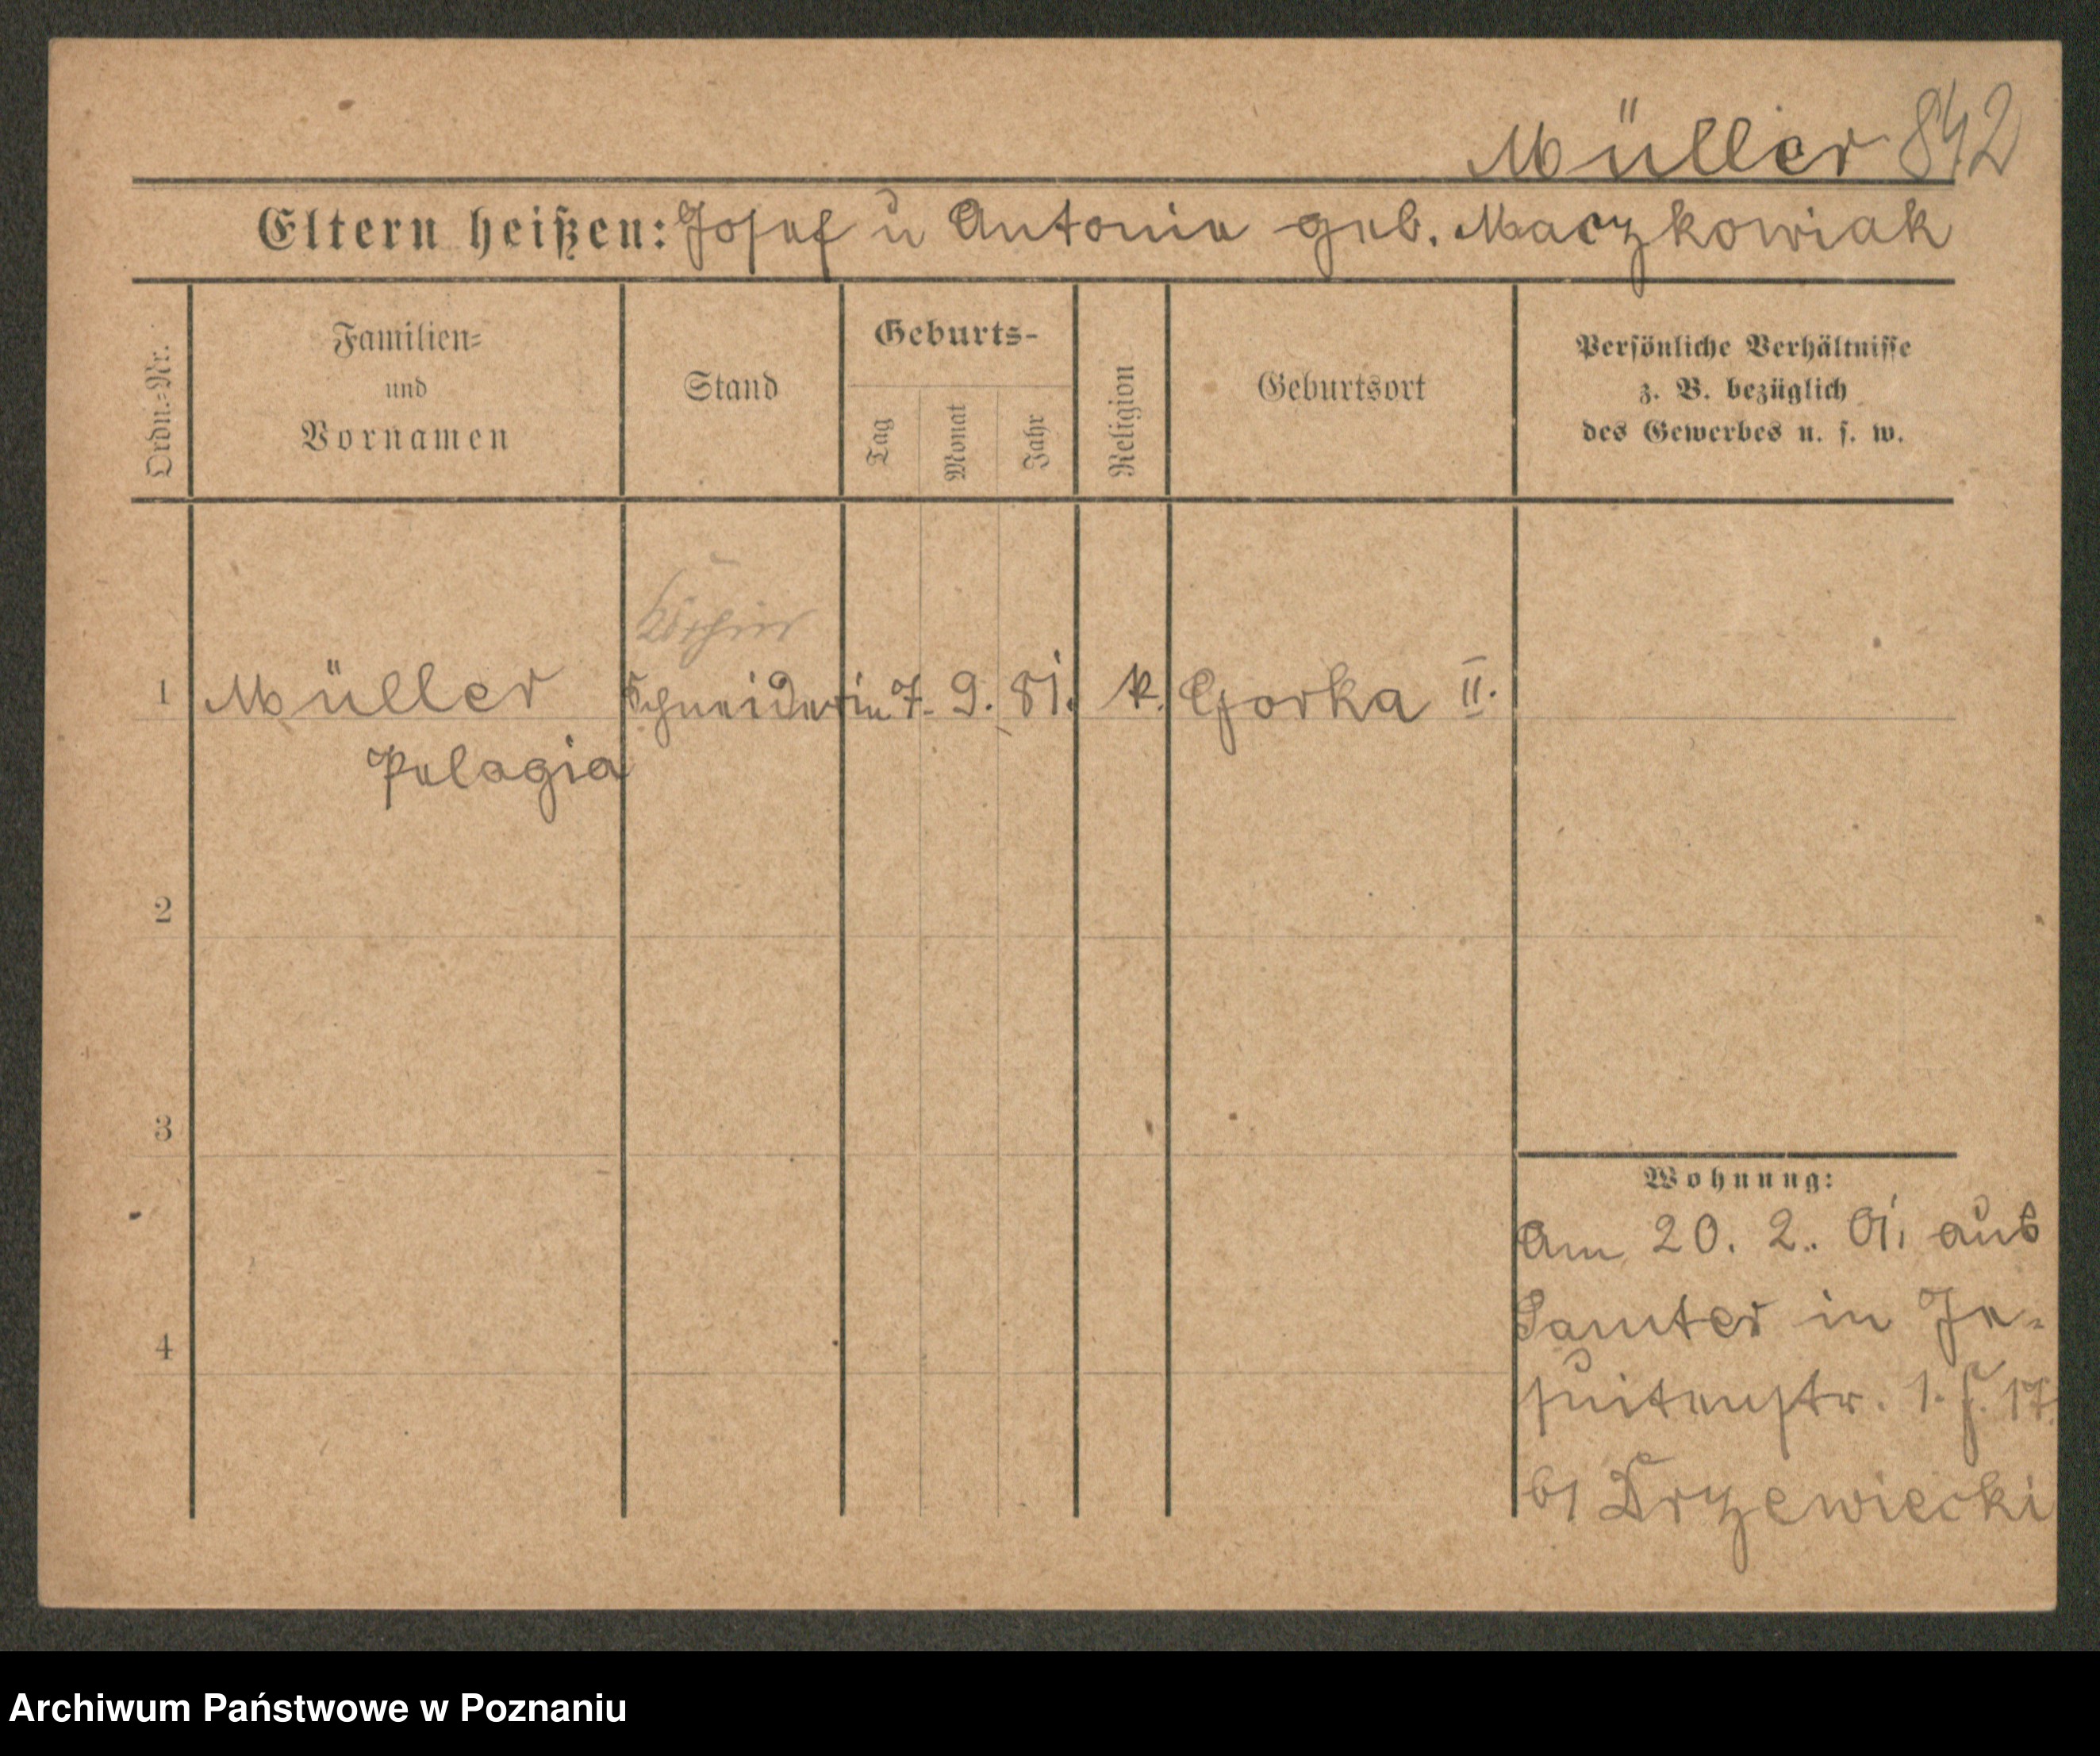 Müller 842
Eltern heißen: Josef u Antonie geb. Maczkowiak
Ordn.-Nr.
Familien-
und
Vornamen
Stand
Geburts-
Tag
Monat
Jahr
Religion
Geburtsort
Persönliche Verhältnisse
z. B. bezüglich
des Gewerbes u. s. w.
Köchin
1 Müller Schneiderin 7. 9. 81. k. Gorka II.
Pelagia
2
3
4
Wohnung:
Am 20. 2. 01. aus
Samter in Je-
suitenstr. 1. H. 17.
b/ Drzewiecki
Archiwum Państwowe w Poznaniu